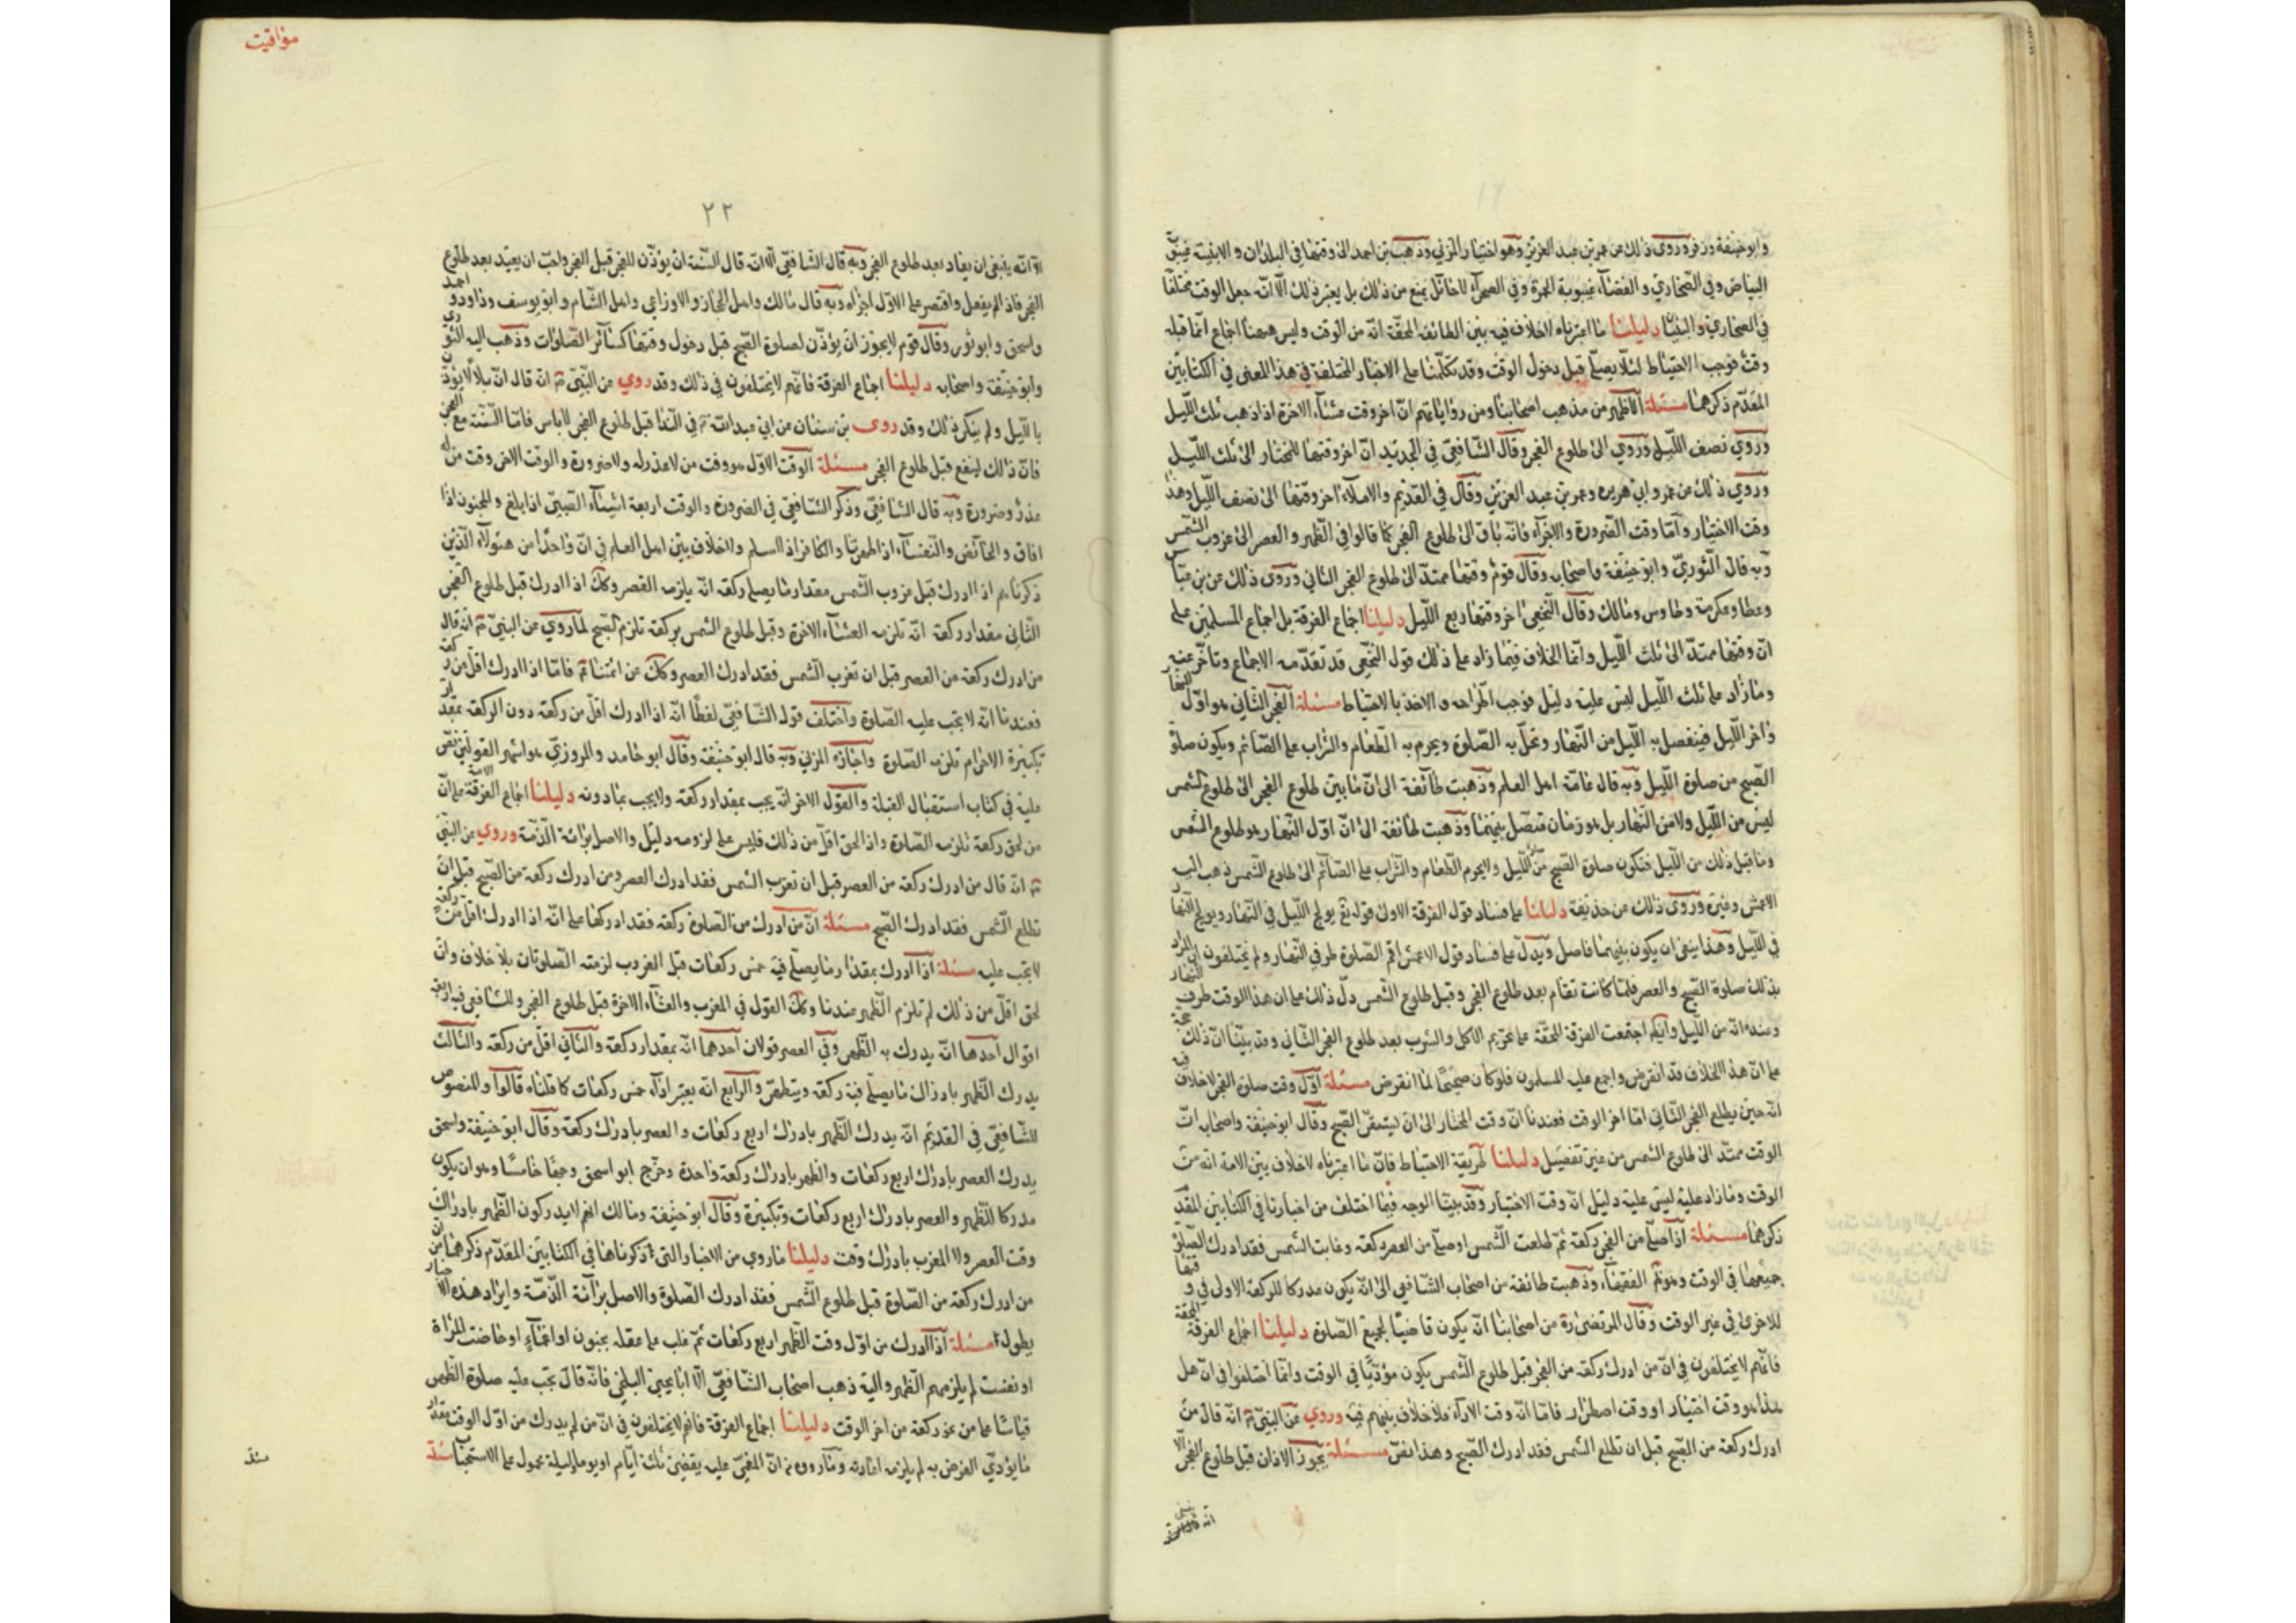 وابو حنيفة وزفر وروى ذلك عن عمر بن عبد العزيز وهو اختيار المزني وذهب بن احمد الى وقتها في البلدان والابنية غيبوبة
البياض وفي الصحاري والفضاء غيبوبة الحمرة وفي الصحراء لا حائل يمنع من ذلك بل يعتبر ذلك الا انه جعل الوقت مختلفا
في الصحاري والبنيان دليلنا ما اعتبرناه لا خلاف فيه بين الطائفة المحقة انه من الوقت وليس ههنا اجماع انما قبله
وقت فوجب الاحتياط لئلا يصلي قبل دخول الوقت وقد تكلمنا على الاخبار المختلفة في هذا المعنى في الكتابين
المقدم ذكرهما مسئلة الاظهر من مذهب اصحابنا ومن رواياتهم ان اخر وقت عشاء الاخرة اذا ذهب ثلث الليل
وروي نصف الليل وروي الى طلوع الفجر وقال الشافعي في الجديد ان اخر وقتها المختار الى ثلث الليل
وروي ذلك عن عمر وابي هريرة وعمر بن عبد العزيز وقال في القديم والاملاء اخر وقتها الى نصف الليل وهذا
وقت الاختيار واما وقت الضرورة والاجزاء فانه باق الى طلوع الفجر كما قالوا في الظهر والعصر الى غروب الشمس
وبه قال الثوري وابو حنيفة واصحابه وقال قوم وقتها ممتد الى طلوع الفجر الثاني وروى ذلك عن بن عباس
وعطا وعكرمة وطاوس ومالك وقال النخعي اخر وقتها ربع الليل دليلنا اجماع الفرقة بل اجماع المسلمين على
ان وقتها ممتد الى ثلث الليل وانما الخلاف فيما زاد على ذلك قول النخعي قد تقدمه الاجماع وتاخر عنه
وما زاد على ثلث الليل ليس عليه دليل فوجب اطراحه والاخذ بالاحتياط مسئلة الفجر الثاني هو اول النهار
واخر الليل فينفصل به الليل من النهار وتحل به الصلوة ويحرم به الطعام والشراب على الصائم ويكون صلوة
الصبح من صلوة الليل وبه قال عامة اهل العلم وذهبت طائفة الى ان ما بين طلوع الفجر الى طلوع الشمس
ليس من الليل ولا من النهار بل هو زمان منفصل بينهما وذهبت طائفة الى ان اول النهار هو طلوع الشمس
وما قبل ذلك من الليل فتكون صلوة الصبح من الليل ولا يحرم الطعام والشراب على الصائم الى طلوع الشمس ذهب اليه
الاعمش وغيره وروى ذلك عن حذيفة دليلنا على فساد قول الفرقة الاولى قوله تع يولج الليل في النهار ويولج النهار
في الليل وهذا ينفي ان يكون بينهما فاصل ويدل على فساد قول الاعمش اقم الصلوة طرفي النهار ولم يختلفون ان المراد
بذلك صلوة الصبح والعصر فلما كانت تقام بعد طلوع الفجر وقبل طلوع الشمس دل ذلك على ان هذا الوقت طرف النهار
وعنده انه من الليل وايضا اجتمعت الفرقة المحقة على تحريم الاكل والشرب بعد طلوع الفجر الثاني وقد بينا ان ذلك حجة
على ان هذا الخلاف قد انقرض واجمع عليه المسلمون فلو كان صحيحا لما انقرض مسئلة اول وقت صلوة الفجر لا خلاف فيه
انه حين يطلع الفجر الثاني اما اخر الوقت فعندنا ان وقت المختار الى ان يسفر الصبح وقال ابو حنيفة واصحابه ان
الوقت ممتد الى طلوع الشمس من غير تفصيل دليلنا طريقة الاحتياط فان ما اعتبرناه لا خلاف بين الامة انه من
الوقت وما زاد عليه ليس عليه دليل انه وقت الاختيار وقد بينا الوجه فيما اختلف من اخبارنا في الكتابين المقدم
ذكرهما مسئلة اذا صلى من الفجر ركعة ثم طلعت الشمس او صلى من العصر ركعة وغابت الشمس فقد ادرك الصلوة
جميعها في الوقت وهو الفقهاء وذهبت طائفة من اصحاب الشافعي الى انه يكون مدركا للركعة الاولى في وقتها
للاخرى في غير الوقت وقال المرتضى ره من اصحابنا انه يكون قاضيا لجميع الصلوة دليلنا اجماع الفرقة المحقة
فانهم لا يختلفون في ان من ادرك ركعة من الفجر قبل طلوع الشمس يكون مؤديا في الوقت وانما اختلفوا في ان هل
هذا هو وقت اختيار او وقت اضطرار فاما انه وقت الاداء فلا خلاف بينهم فيه وروي عن النبي ص انه قال من
ادرك ركعة من الصبح قبل ان تطلع الشمس فقد ادرك الصبح وهذا نص مسئلة يجوز الاذان قبل طلوع الفجر الا
انه
مواقيت
٢٢
الا انه ينبغي ان يعاد بعد طلوع الفجر وبه قال الشافعي الا انه قال السنة ان يؤذن للفجر قبل الفجر واحب ان يعيد بعد طلوع
الفجر فان لم يفعل واقتصر على الاول اجزاه وبه قال مالك واهل الحجاز والاوزاعي واهل الشام وابو يوسف وداود و احمد
واسحق وابو ثور وقال قوم لا يجوز ان يؤذن لصلوة الصبح قبل دخول وقتها كسائر الصلوات وذهب اليه الثوري
وابو حنيفة واصحابه دليلنا اجماع الفرقة فانهم لا يختلفون في ذلك وقد روي عن النبي ص انه قال ان بلالا يؤذن
بالليل ولم ينكر ذلك وقد روى بن سنان عن ابي عبد الله ع في الندا قبل طلوع الفجر لا باس فاما السنة مع الفجر
فان ذلك لينفع قبل طلوع الفجر مسئلة الوقت الاول هو وقت من لا عذر له ولا ضرورة والوقت الاخر وقت من له
عذر وضرورة وبه قال الشافعي وذكر الشافعي في الضرورة والوقت اربعة اشياء الصبي اذا بلغ والمجنون اذا
افاق والحائض والنفساء اذا طهرتا والكافر اذا اسلم ولا خلاف بين اهل العلم في ان واحدا من هؤلاء الذين
ذكرناهم اذا ادرك قبل غروب الشمس مقدار ما يصلي ركعة انه يلزمه العصر وكك اذا ادرك قبل طلوع الفجر
الثاني مقدار ركعة انه تلزمه العشاء الاخرة وقبل طلوع الشمس بركعة تلزم الصبح لما روي عن النبي ص انه قال
من ادرك ركعة من العصر قبل ان تغرب الشمس فقد ادرك العصر وكك عن ائمتنا ع فاما اذا ادرك اقل من ركعة
فعندنا انه لا يجب عليه الصلوة واختلف قول الشافعي لفظا انه اذا ادرك اقل من ركعة دون الركعة بمقدار
تكبيرة الاحرام تلزمه الصلوة واختاره المزني وبه قال ابو حنيفة وقال ابو حامد والمروزي هو اشهر القولين نص
عليه في كتاب استقبال القبلة والقول الاخر انه يجب بمقدار ركعة ولا يجب بما دونه دليلنا اجماع الفرقة على ان
من لحق ركعة تلزمه الصلوة واذا لحق اقل من ذلك فليس على لزومه دليل والاصل براءة الذمة وروي عن النبي
ص انه قال من ادرك ركعة من العصر قبل ان تغرب الشمس فقد ادرك العصر ومن ادرك ركعة من الصبح قبل ان
تطلع الشمس فقد ادرك الصبح مسئلة ان من ادرك من الصلوة ركعة فقد ادركها على انه اذا ادرك اقل من ركعة
لا يجب عليه مسئلة اذا ادرك بمقدار ما يصلي فيه خمس ركعات قبل الغروب لزمته الصلوتان بلا خلاف وان
لحق اقل من ذلك لم تلزم الظهر عندنا وكك القول في المغرب والعشاء الاخرة قبل طلوع الفجر وللشافعي فيه اربعة
اقوال احدها انه يدرك به الظهر وفي العصر قولان احدهما انه بمقدار ركعة والثاني اقل من ركعة والثالث
يدرك الظهر بادراك ما يصلي فيه ركعة ويتطهر والرابع انه يعتبر اداء خمس ركعات كما قلناه قالوا والمنصوص
للشافعي في القديم انه يدرك الظهر بادراك اربع ركعات والعصر بادراك ركعة وقال ابو حنيفة واسحق
يدرك العصر بادراك اربع ركعات والظهر بادراك ركعة واحدة وخرج ابو اسحق وجها خامسا وهو ان يكون
مدركا للظهر والعصر بادراك اربع ركعات وتكبيرة وقال ابو حنيفة ومالك انهم لا يدركون الظهر بادراك
وقت العصر ولا المغرب بادراك وقت دليلنا ما روي من الاخبار التي ذكرناها في الكتابين المقدم ذكرهما ان من
من ادرك ركعة من الصلوة قبل طلوع الشمس فقد ادرك الصلوة والاصل براءة الذمة وايراد هذه الاخبار
يطول مسئلة اذا ادرك من اول وقت الظهر اربع ركعات ثم غلب على عقله بجنون او اغماء او حاضت المراة
او نفست لم يلزمهم الظهر واليه ذهب اصحاب الشافعي الا ابا يحيى البلخي فانه قال يجب عليه صلوة الظهر
قياسا على من لحق ركعة من اخر الوقت دليلنا اجماع الفرقة فانهم لا يختلفون في ان من لم يدرك من اول الوقت مقدار
ما يؤدي الفرض به لم يلزمه اعادته وما رووه من ان المغمى عليه يقضي ثلثة ايام او يوما وليلة محمول على الاستحباب مسئلة
مسئلة